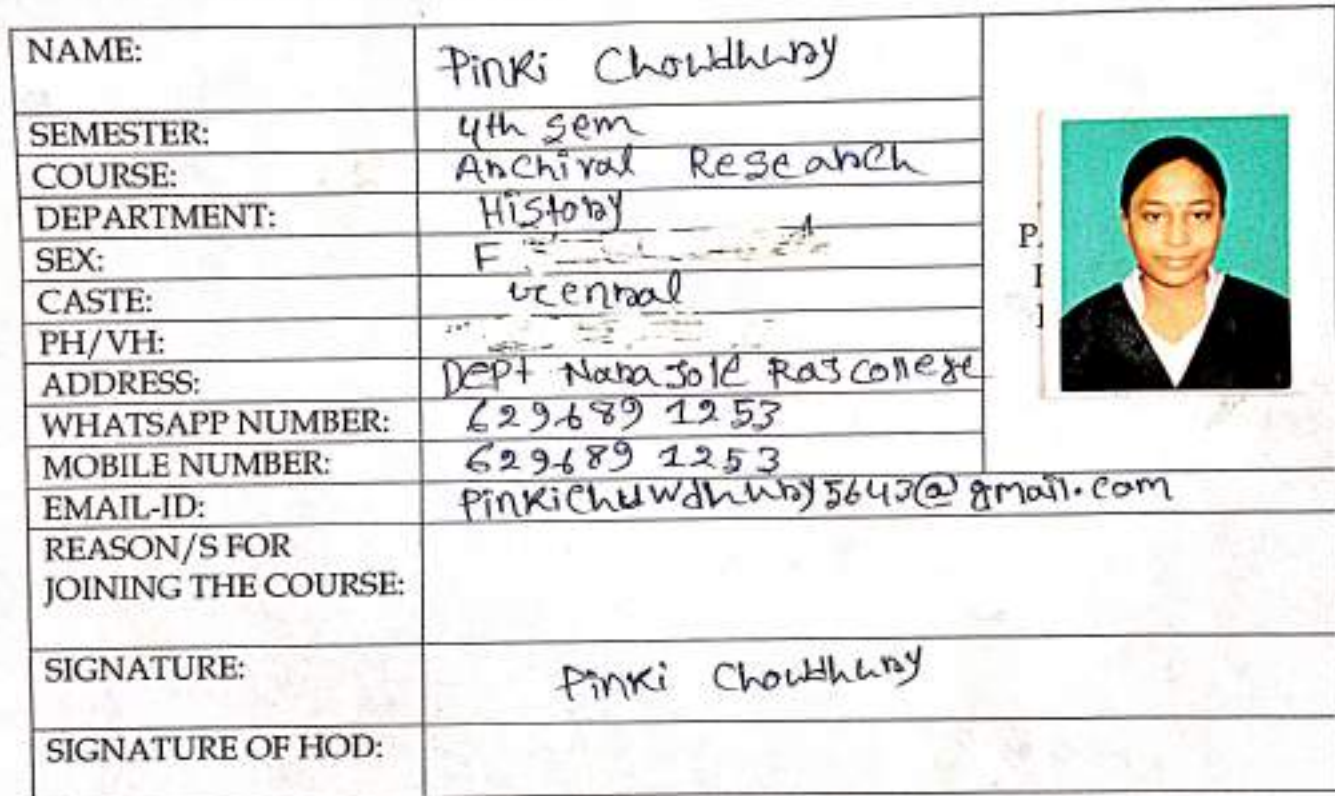 NAME: Pinki Chowdhury
SEMESTER: 4th sem
COURSE: Archival Research
DEPARTMENT: History
SEX: F
CASTE: General
PH/VH:
ADDRESS: Dept Narajole Raj college
WHATSAPP NUMBER: 629689 1253
MOBILE NUMBER: 629689 1253
EMAIL-ID: Pinkichowdhury5643@gmail.com
REASON/S FOR
JOINING THE COURSE:
SIGNATURE: Pinki Chowdhury
SIGNATURE OF HOD: